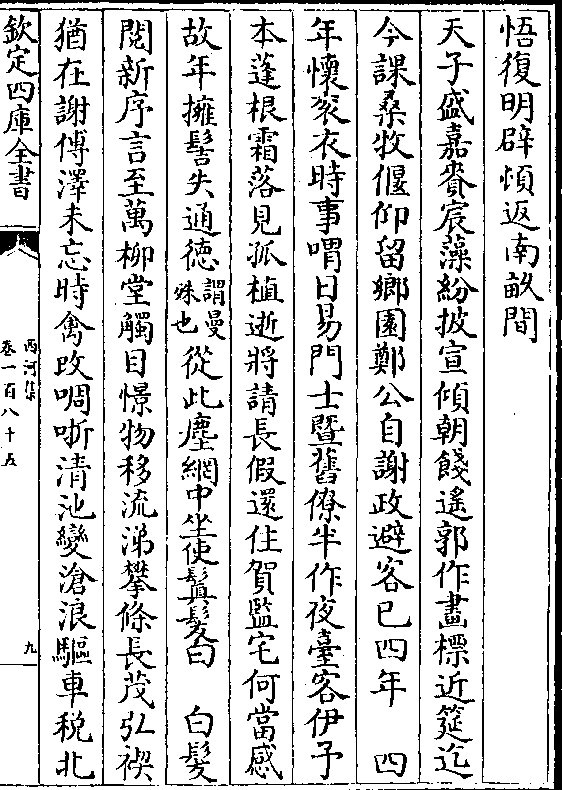 悟復明辟煩返南畝間
天子盛嘉賚宸藻紛披宣傾朝餞遙郭作畫標近筵迄
今課桑牧偃仰留鄉園鄭公自謝政避客已四年　四
年懷袞衣時事喟日易門士暨舊僚半作夜臺客伊予
本蓬根霜落見孤植逝將請長假還住賀監宅何當感
故年擁髻失通德謂曼殊也從此塵網中坐使鬒髮白　白髮
閱新序言至萬柳堂觸目憬物移流涕攀條長茂弘禊
猶在謝傅澤未忘時禽改啁哳清池變滄浪驅車稅北
欽定四庫全書
西河集
卷一百八十五
九